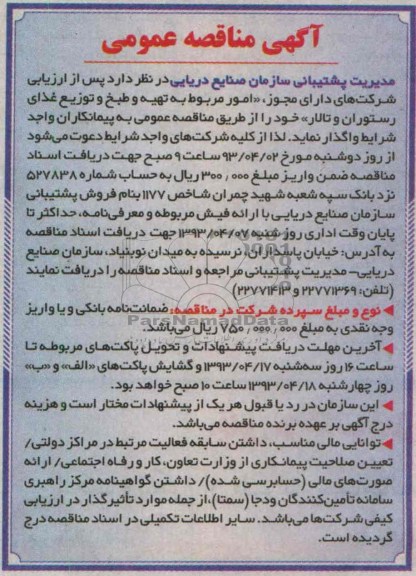 آگهی مناقصه عمومی
مدیریت پشتیبانی سازمان صنایع دریایی در نظر دارد پس از ارزیابی
شرکت‌های دارای مجوز، «امور مربوط به تهیه و طبخ و توزیع غذای
رستوران و تالار» خود را از طریق مناقصه عمومی به پیمانکاران واجد
شرایط واگذار نماید. لذا از کلیه شرکت‌های واجد شرایط دعوت می‌شود
از روز دوشنبه مورخ ۹۳/۰۴/۰۲ ساعت ۹ صبح جهت دریافت اسناد
مناقصه ضمن واریز مبلغ ۳۰۰,۰۰۰ ریال به حساب شماره ۵۲۷۸۳۸
نزد بانک سپه شعبه شهید چمران شاخص ۱۱۷۷ بنام فروش پشتیبانی
سازمان صنایع دریایی با ارائه فیش مربوطه و معرفی‌نامه، حداکثر تا
پایان وقت اداری روز شنبه ۱۳۹۳/۰۴/۰۷ جهت دریافت اسناد مناقصه
به آدرس: خیابان پاسداران، نرسیده به میدان نوبنیاد، سازمان صنایع
دریایی- مدیریت پشتیبانی مراجعه و اسناد مناقصه را دریافت نمایند
(تلفن: ۲۲۷۷۱۳۶۹ و ۲۲۷۷۱۴۱۳)
◄ نوع و مبلغ سپرده شرکت در مناقصه: ضمانت‌نامه بانکی و یا واریز
وجه نقدی به مبلغ ۷۵۰,۰۰۰,۰۰۰ ریال می‌باشد.
ParsNamadData
◄ آخرین مهلت دریافت پیشنهادات و تحویل پاکت‌های مربوطه تا
ساعت ۱۶ روز سه‌شنبه ۱۳۹۳/۰۴/۱۷ و گشایش پاکت‌های «الف» و «ب»
روز چهارشنبه ۱۳۹۳/۰۴/۱۸ ساعت ۱۰ صبح خواهد بود.
◄ این سازمان در رد یا قبول هر یک از پیشنهادات مختار است و هزینه
درج آگهی بر عهده برنده مناقصه می‌باشد.
◄ توانایی مالی مناسب، داشتن سابقه فعالیت مرتبط در مراکز دولتی/
تعیین صلاحیت پیمانکاری از وزارت تعاون، کار و رفاه اجتماعی/ ارائه
صورت‌های مالی (حسابرسی شده)/ داشتن گواهینامه مرکز راهبری
سامانه تأمین‌کنندگان ودجا (سمتا)، از جمله موارد تأثیرگذار در ارزیابی
کیفی شرکت‌ها می‌باشد. سایر اطلاعات تکمیلی در اسناد مناقصه درج
گردیده است.